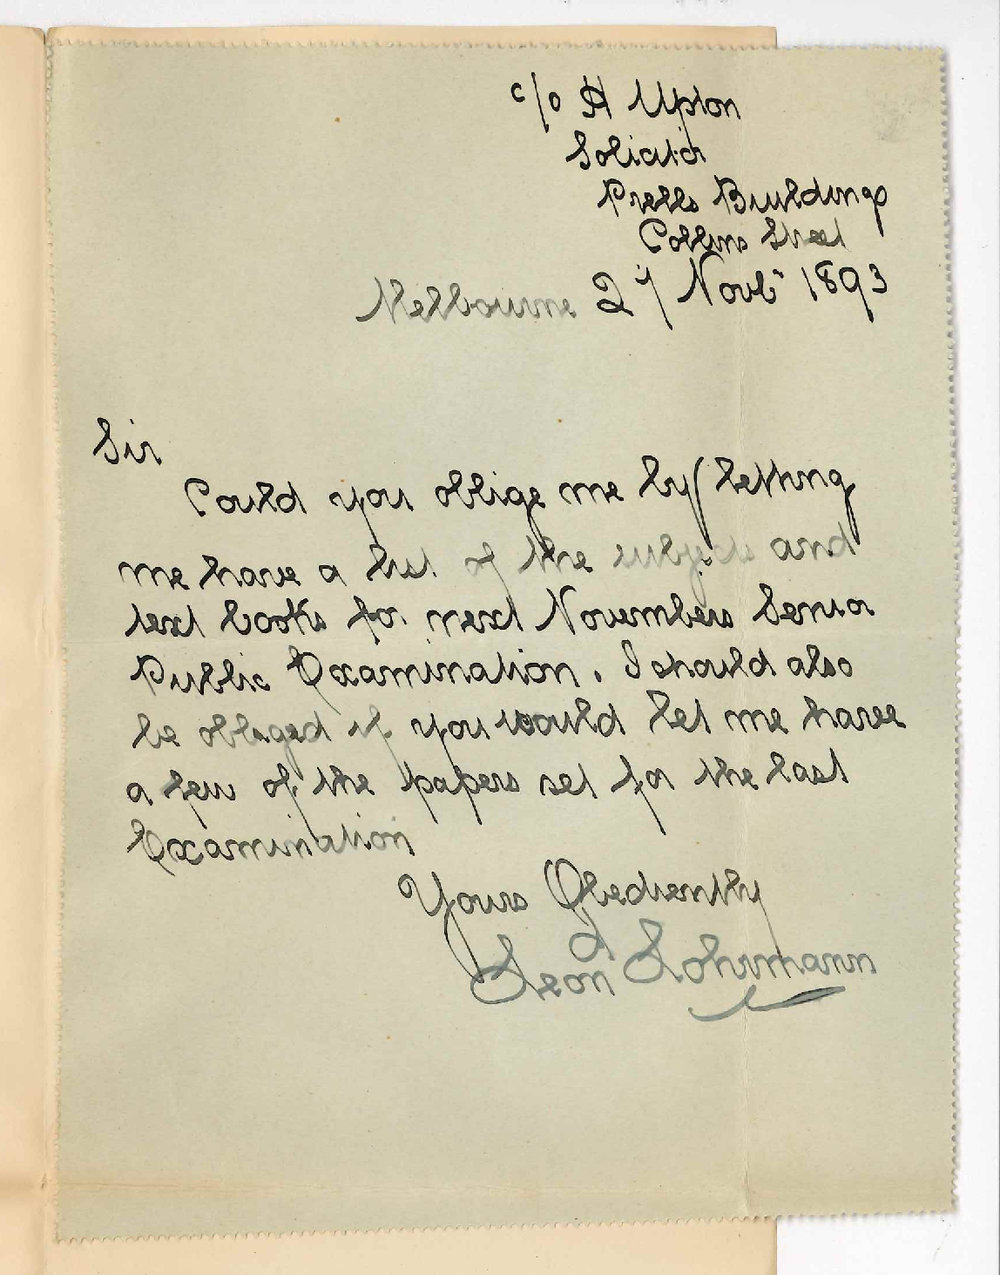 c/o H Upton
Solicitor
Prells Buildings
Collins Street
Melbourne 27 Novbr 1893
Sir
Could you oblige me by letting
me have a list of the subjects and
text books for next Novembers Senior
Public Examination. I should also
be obliged if you would let me have
a few of the papers set for the last
Examination
Yours Obediently
Leon Lohrmann